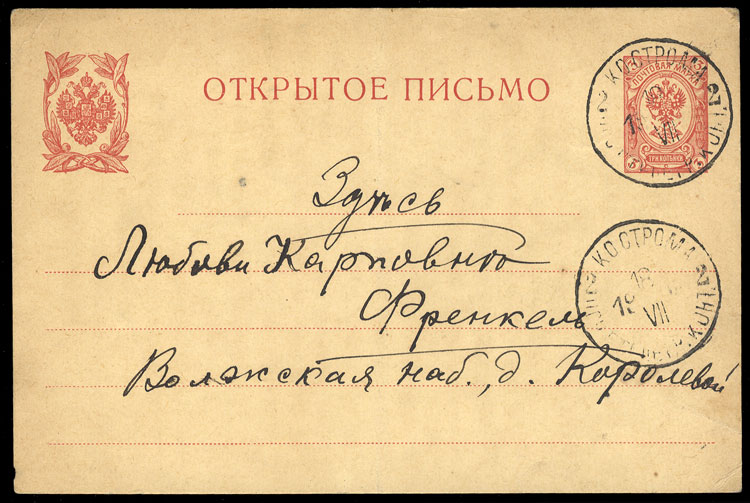 ОТКРЫТОЕ ПИСЬМО
ПОЧТОВАЯ МАРКА
КОСТРОМА
VII
ТРИ КОПѢЙКИ
Здѣсь
Любови Карповнѣ
Френкель
Волжская наб., д. Королевой
КОСТРОМА
18
19
VII